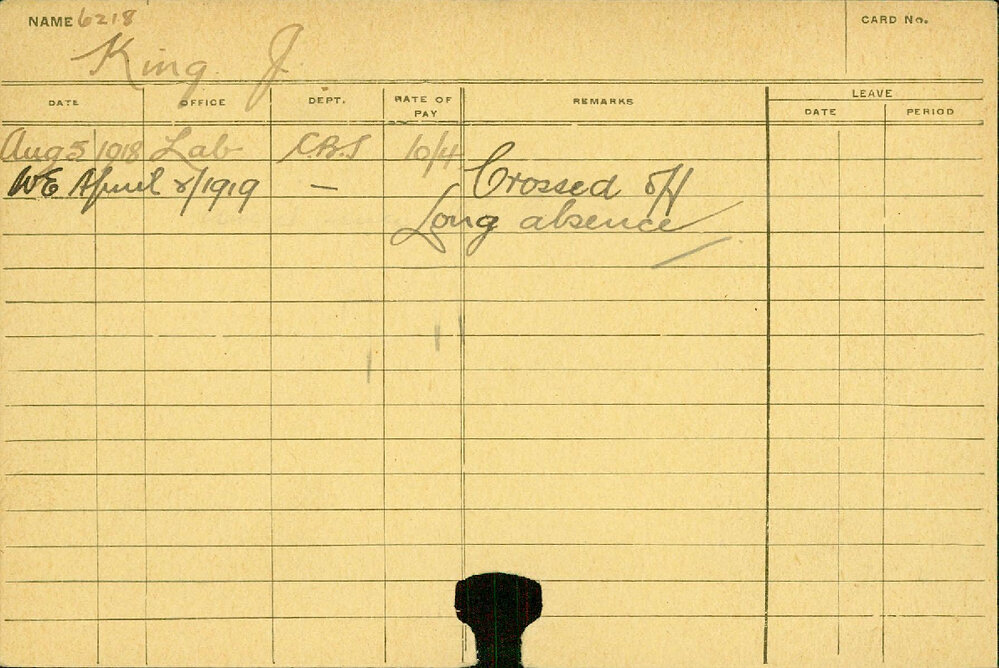 NAME 6218 CARD No.
King J
DATE OFFICE DEPT. RATE OF PAY REMARKS LEAVE
DATE PERIOD
Aug 5 1918 Lab 10/4
WE April /1919 — Crossed off
Long absence